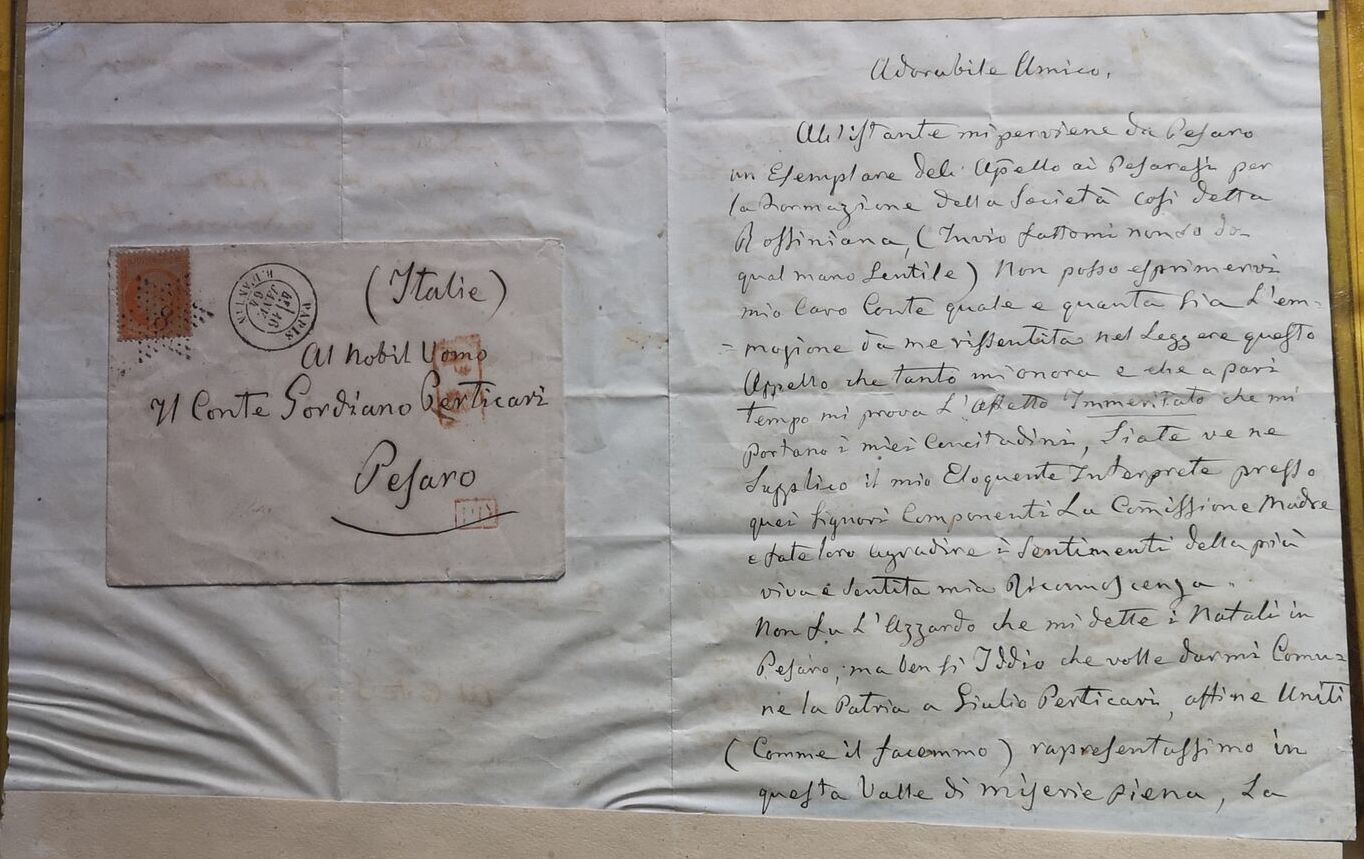 (Italie)
Al Nobil Uomo
Il Conte Gordiano Perticari
Pesaro
PARIS
JANV.
64
P.D.
Adorabile Amico,
All'istante mi perviene da Pesaro
un Esemplare dell' Appello ai Pesaresi per
la Formazione della Società così detta
Rossiniana, (Invio fattomi non so da
qual mano Gentile) Non posso esprimervi
mio Caro Conte quale e quanta sia L'em-
-mozione da me rissentita nel Leggere questo
Appello che tanto mi onora e che a pari
tempo mi prova L'affetto Immeritato che mi
portano i miei Concitadini, Siate ve ne
Supplico il mio Eloquente Interprete presso
quei Signori Componenti La Comissione Madre
e fate loro agradire i Sentimenti della più
viva e Sentita mia Riconoscenza.
Non fu L'Azzardo che mi dette i Natali in
Pesaro, ma ben sì Iddio che volle darmi Comu-
ne la Patria a Giulio Perticari, affine Uniti
(Comme il facemmo) rapresentassimo in
questa Valle di miserie piena, La